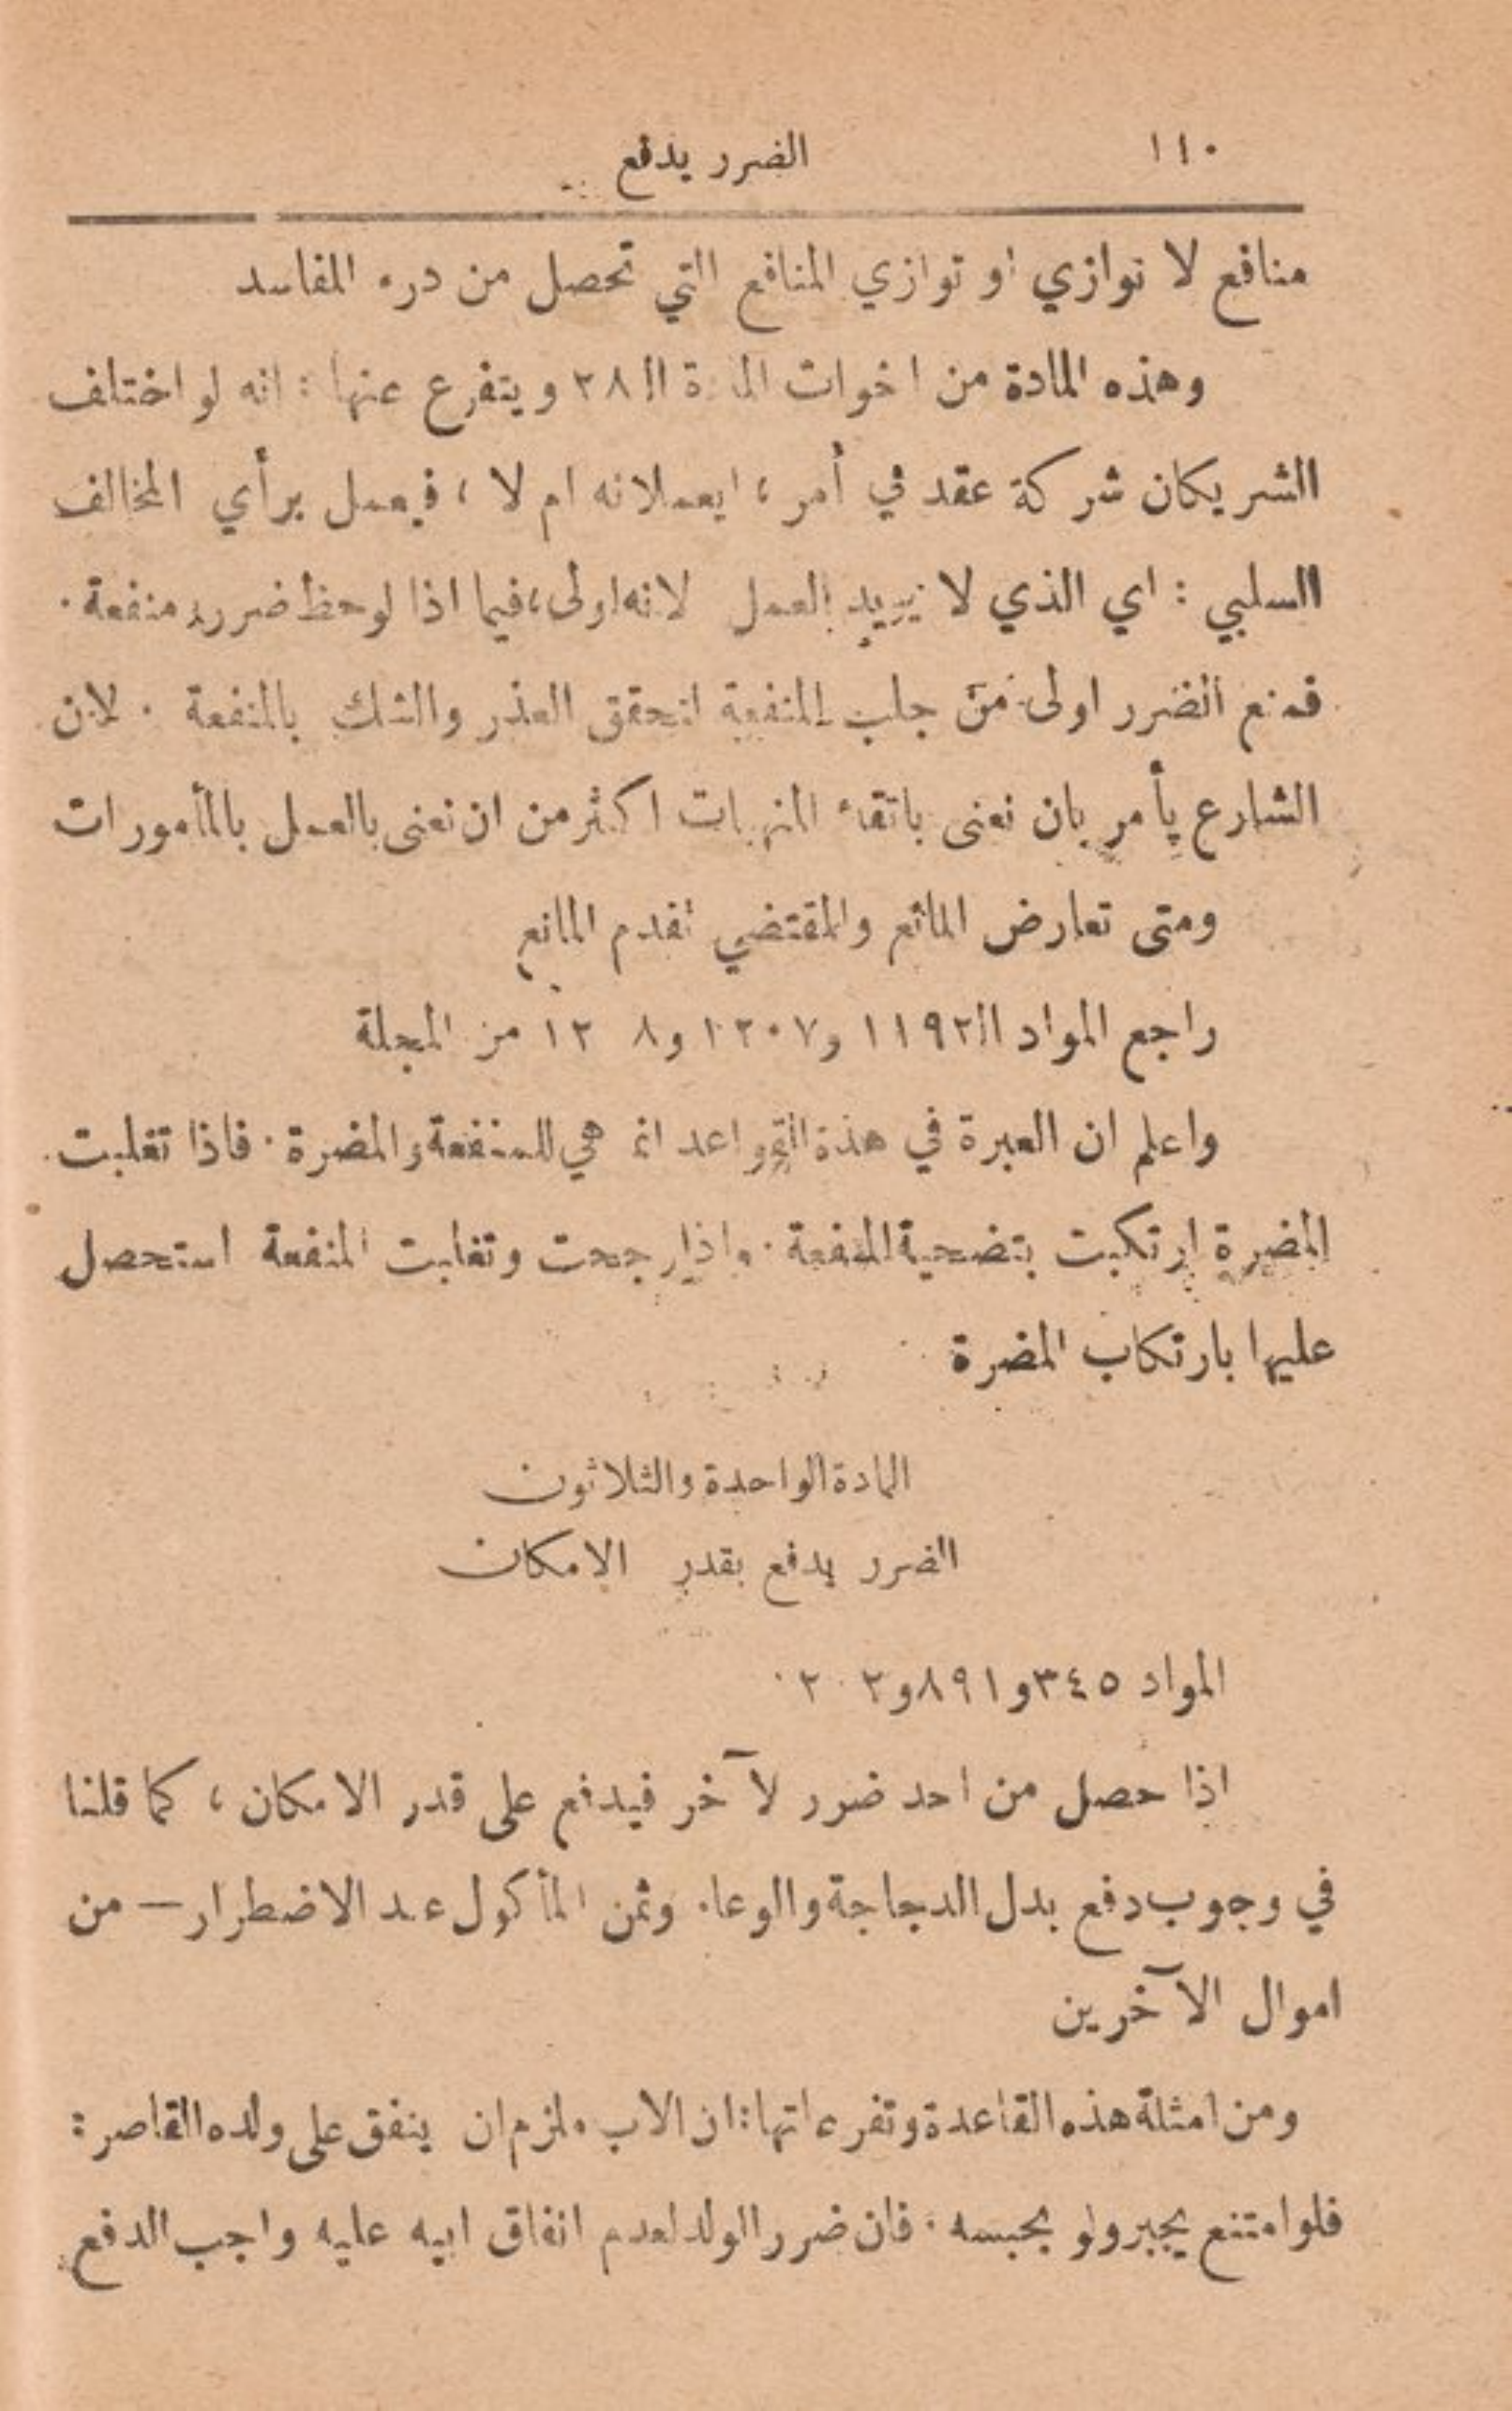 ١١٠ الضرر يدفع
منافع لا توازي او توازي المنافع التي تحصل من درء المفاسد
وهذه المادة من اخوات المادة الـ ٢٨ ويتفرع عنها : انه لو اختلف
الشريكان شركة عقد في أمر ، ايعملانه ام لا ، فيعمل برأي المخالف
السلبي : اي الذي لا يريد العمل لانه اولى ، فيما اذا لوحظ ضرر ومنفعة .
فمنع الضرر اولى من جلب المنفعة لتحقق العذر والشك بالمنفعة . لان
الشارع يأمر بان نعنى باتقاء المنهيات اكثر من ان نعنى بالعمل بالمأمورات
ومتى تعارض المانع والمقتضي تقدم المانع
راجع المواد الـ ١١٩٢ و١٢٠٧ و١٢٠٨ من المجلة
واعلم ان العبرة في هذه القواعد انما هي للمنفعة والمضرة . فاذا تغلبت
المضرة ارتكبت بتضحية المنفعة . واذا رجحت وتغلبت المنفعة استحصل
عليها بارتكاب المضرة
المادة الواحدة والثلاثون
الضرر يدفع بقدر الامكان
المواد ٣٤٥ و٨٩١ و
اذا حصل من احد ضرر لآخر فيدفع على قدر الامكان ، كما قلنا
في وجوب دفع بدل الدجاجة والوعاء وثمن المأكول عند الاضطرار — من
اموال الآخرين
ومن امثلة هذه القاعدة وتفرعاتها : ان الاب ملزم ان ينفق على ولده القاصر :
فلو امتنع يجبر ولو بحبسه . فان ضرر الولد لعدم انفاق ابيه عليه واجب الدفع